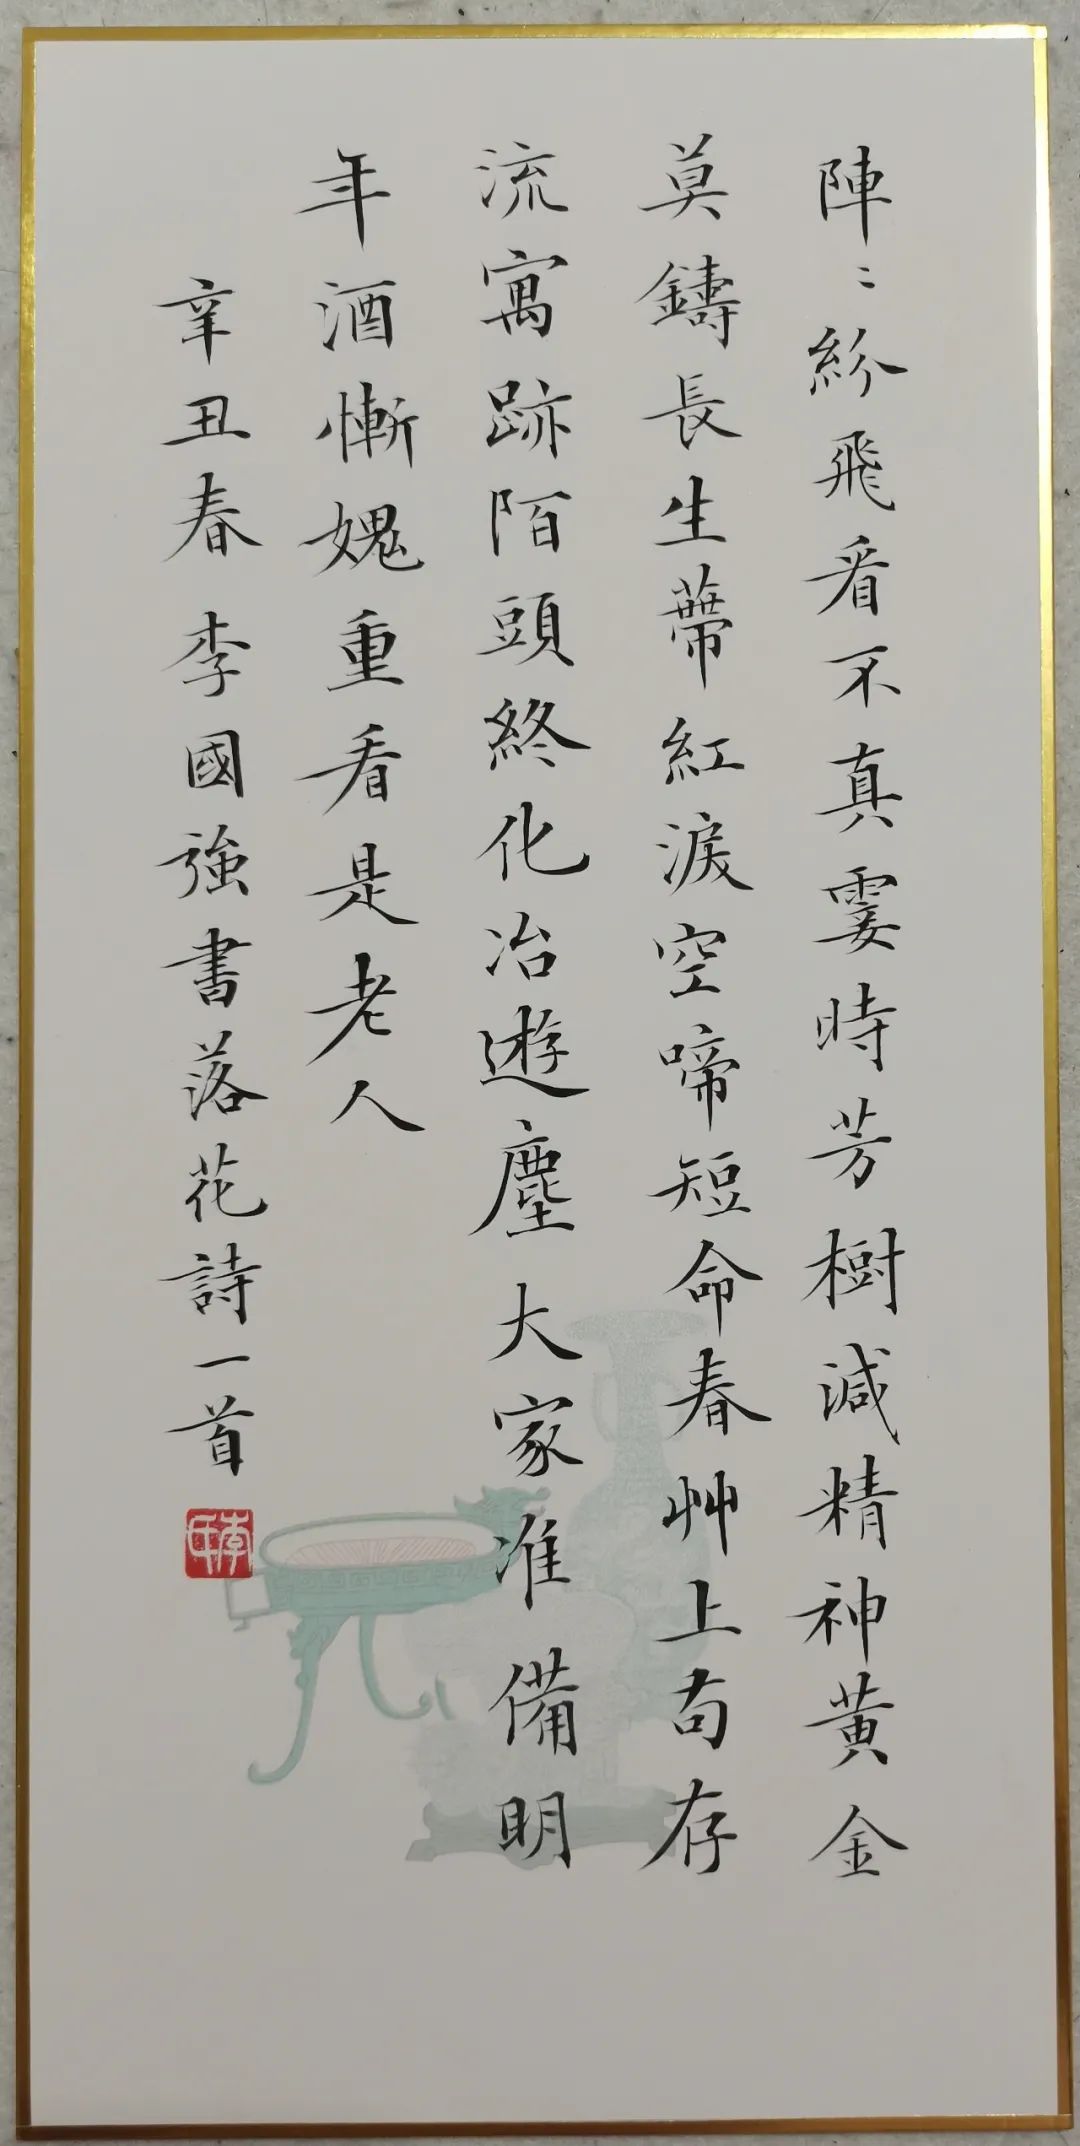 陣〻紛飛看不真霎時芳樹減精神黃金
莫鑄長生蔕紅淚空啼短命春艸上苟存
流寓跡陌頭終化冶遊塵大家准備明
年酒慚媿重看是老人
辛丑春李國強書落花詩一首